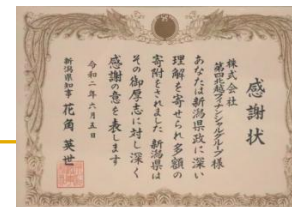 感謝状
株式会社
第四北越フィナンシャルグループ様
あなたは新潟県政に深い
理解を寄せられ多額の
寄附をされました 新潟県は
その御厚志に対し深く
感謝の意を表します
令和二年六月五日
新潟県知事 花角英世